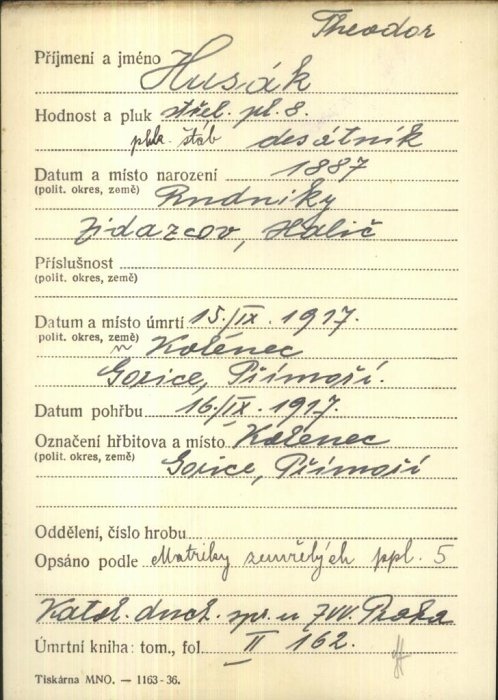 Theodor
Příjmení a jméno Husák
Hodnost a pluk střel. pl. 8.
pluk. štáb desátník
Datum a místo narození 1887
(polit. okres, země) Rudniky
Žídazcov, Halič
Příslušnost
(polit. okres, země)
Datum a místo úmrtí 15./IX. 1917.
polit. okres, země) u Kolénec
Gorice, Přímoří.
Datum pohřbu 16/IX. 1917.
Označení hřbitova a místo
(polit. okres, země)
Gorice, Přímoří
Oddělení, číslo hrobu
Opsáno podle Matriky zemřelých ppl. 5
Katol. duch. spr. u ZVV. Praha
Úmrtní kniha: tom., fol. II 162.
Tiskárna MNO. — 1163-36.